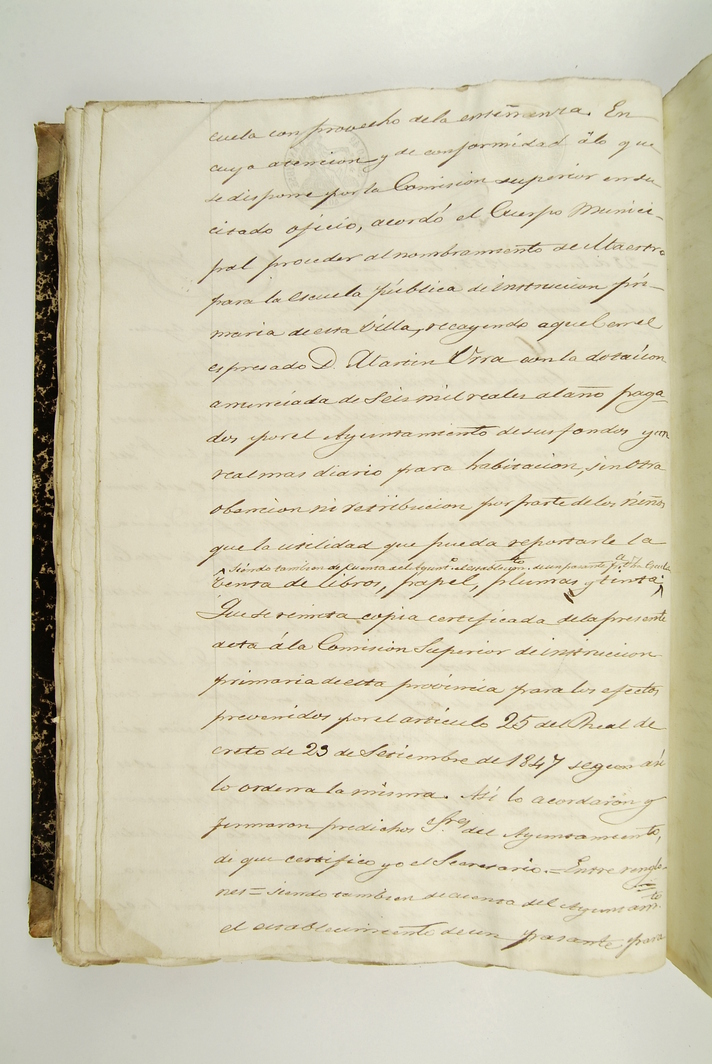 cuela con provecho dela enseñanza. En
cuya atencion y de conformidad álo que
se dispone por la Comision superior en su
citado oficio, acordó el Cuerpo Munici-
pal proceder al nombramiento de Maestro
para la escuela pública de instruccion pri-
maria de esta Villa, recayendo aquel en el
espresado D. Martin Urra con la dotacion
anunciada de Seis mil reales al año paga-
dos por el Ayuntamiento de sus fondos y un
real mas diario para habitacion, sin otra
obencion ni retribucion por parte de los niños
que la utilidad que pueda reportarle la
siendo tambien de cuenta del Ayunt.º el establecim.to de un pasante p.a la Escuela
venta de libros, papel, plumas y tinta;
Que se remita copia certificada dela presente
acta á la Comision Superior de instruccion
primaria de esta provincia para los efectos
prevenidos por el articulo 25 del Real de
creto de 23 de Setiembre de 1847 segun asi
lo ordena la misma. Asi lo acordaron y
firmaron predichos Sres. del Ayuntamiento,
de que certifico yo el Secretario.=Entre renglo-
nes= siendo tambien de cuenta del Ayuntam.to
el establecimiento de un pasante para